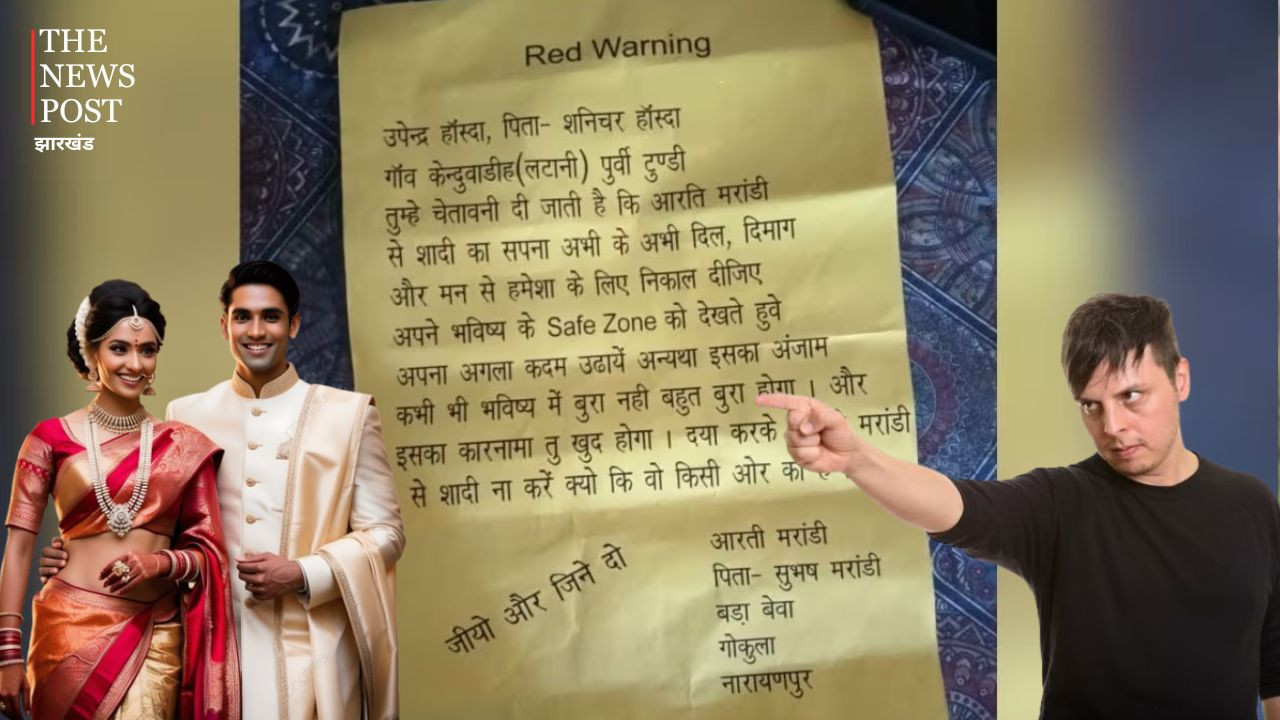 THE
NEWS
POST
झारखंड
Red Warning
उपेन्द्र हॉस्दा, पिता- शनिचर हॉस्दा
गॉव केन्दुवाडीह(लटानी) पुर्वी टुण्डी
तुम्हे चेतावनी दी जाती है कि आरति मरांडी
से शादी का सपना अभी के अभी दिल, दिमाग
और मन से हमेशा के लिए निकाल दीजिए
अपने भविष्य के Safe Zone को देखते हुवे
अपना अगला कदम उढायें अन्यथा इसका अंजाम
कभी भी भविष्य में बुरा नही बहुत बुरा होगा । और
इसका कारनामा तु खुद होगा । दया करके मरांडी
से शादी ना करें क्यो कि वो किसी ओर
जीयो और जिने दो
आरती मरांडी
पिता- सुभष मरांडी
बडा़ बेवा
गोकुला
नारायणपुर